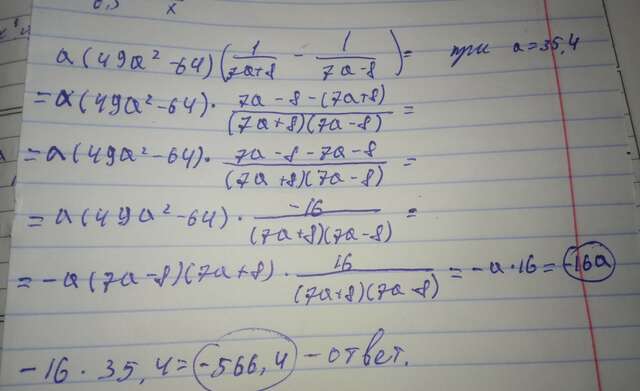 a(49a²-64)(1/(7a+8) - 1/(7a-8))= при a=35,4
=a(49a²-64)·(7a-8-(7a+8))/((7a+8)(7a-8))=
=a(49a²-64)·(7a-8-7a-8)/((7a+8)(7a-8))=
=a(49a²-64)·(-16)/((7a+8)(7a-8))=
=-a(7a-8)(7a+8)·16/((7a+8)(7a-8))=-a·16=-16a
-16·35,4=-566,4-ответ.